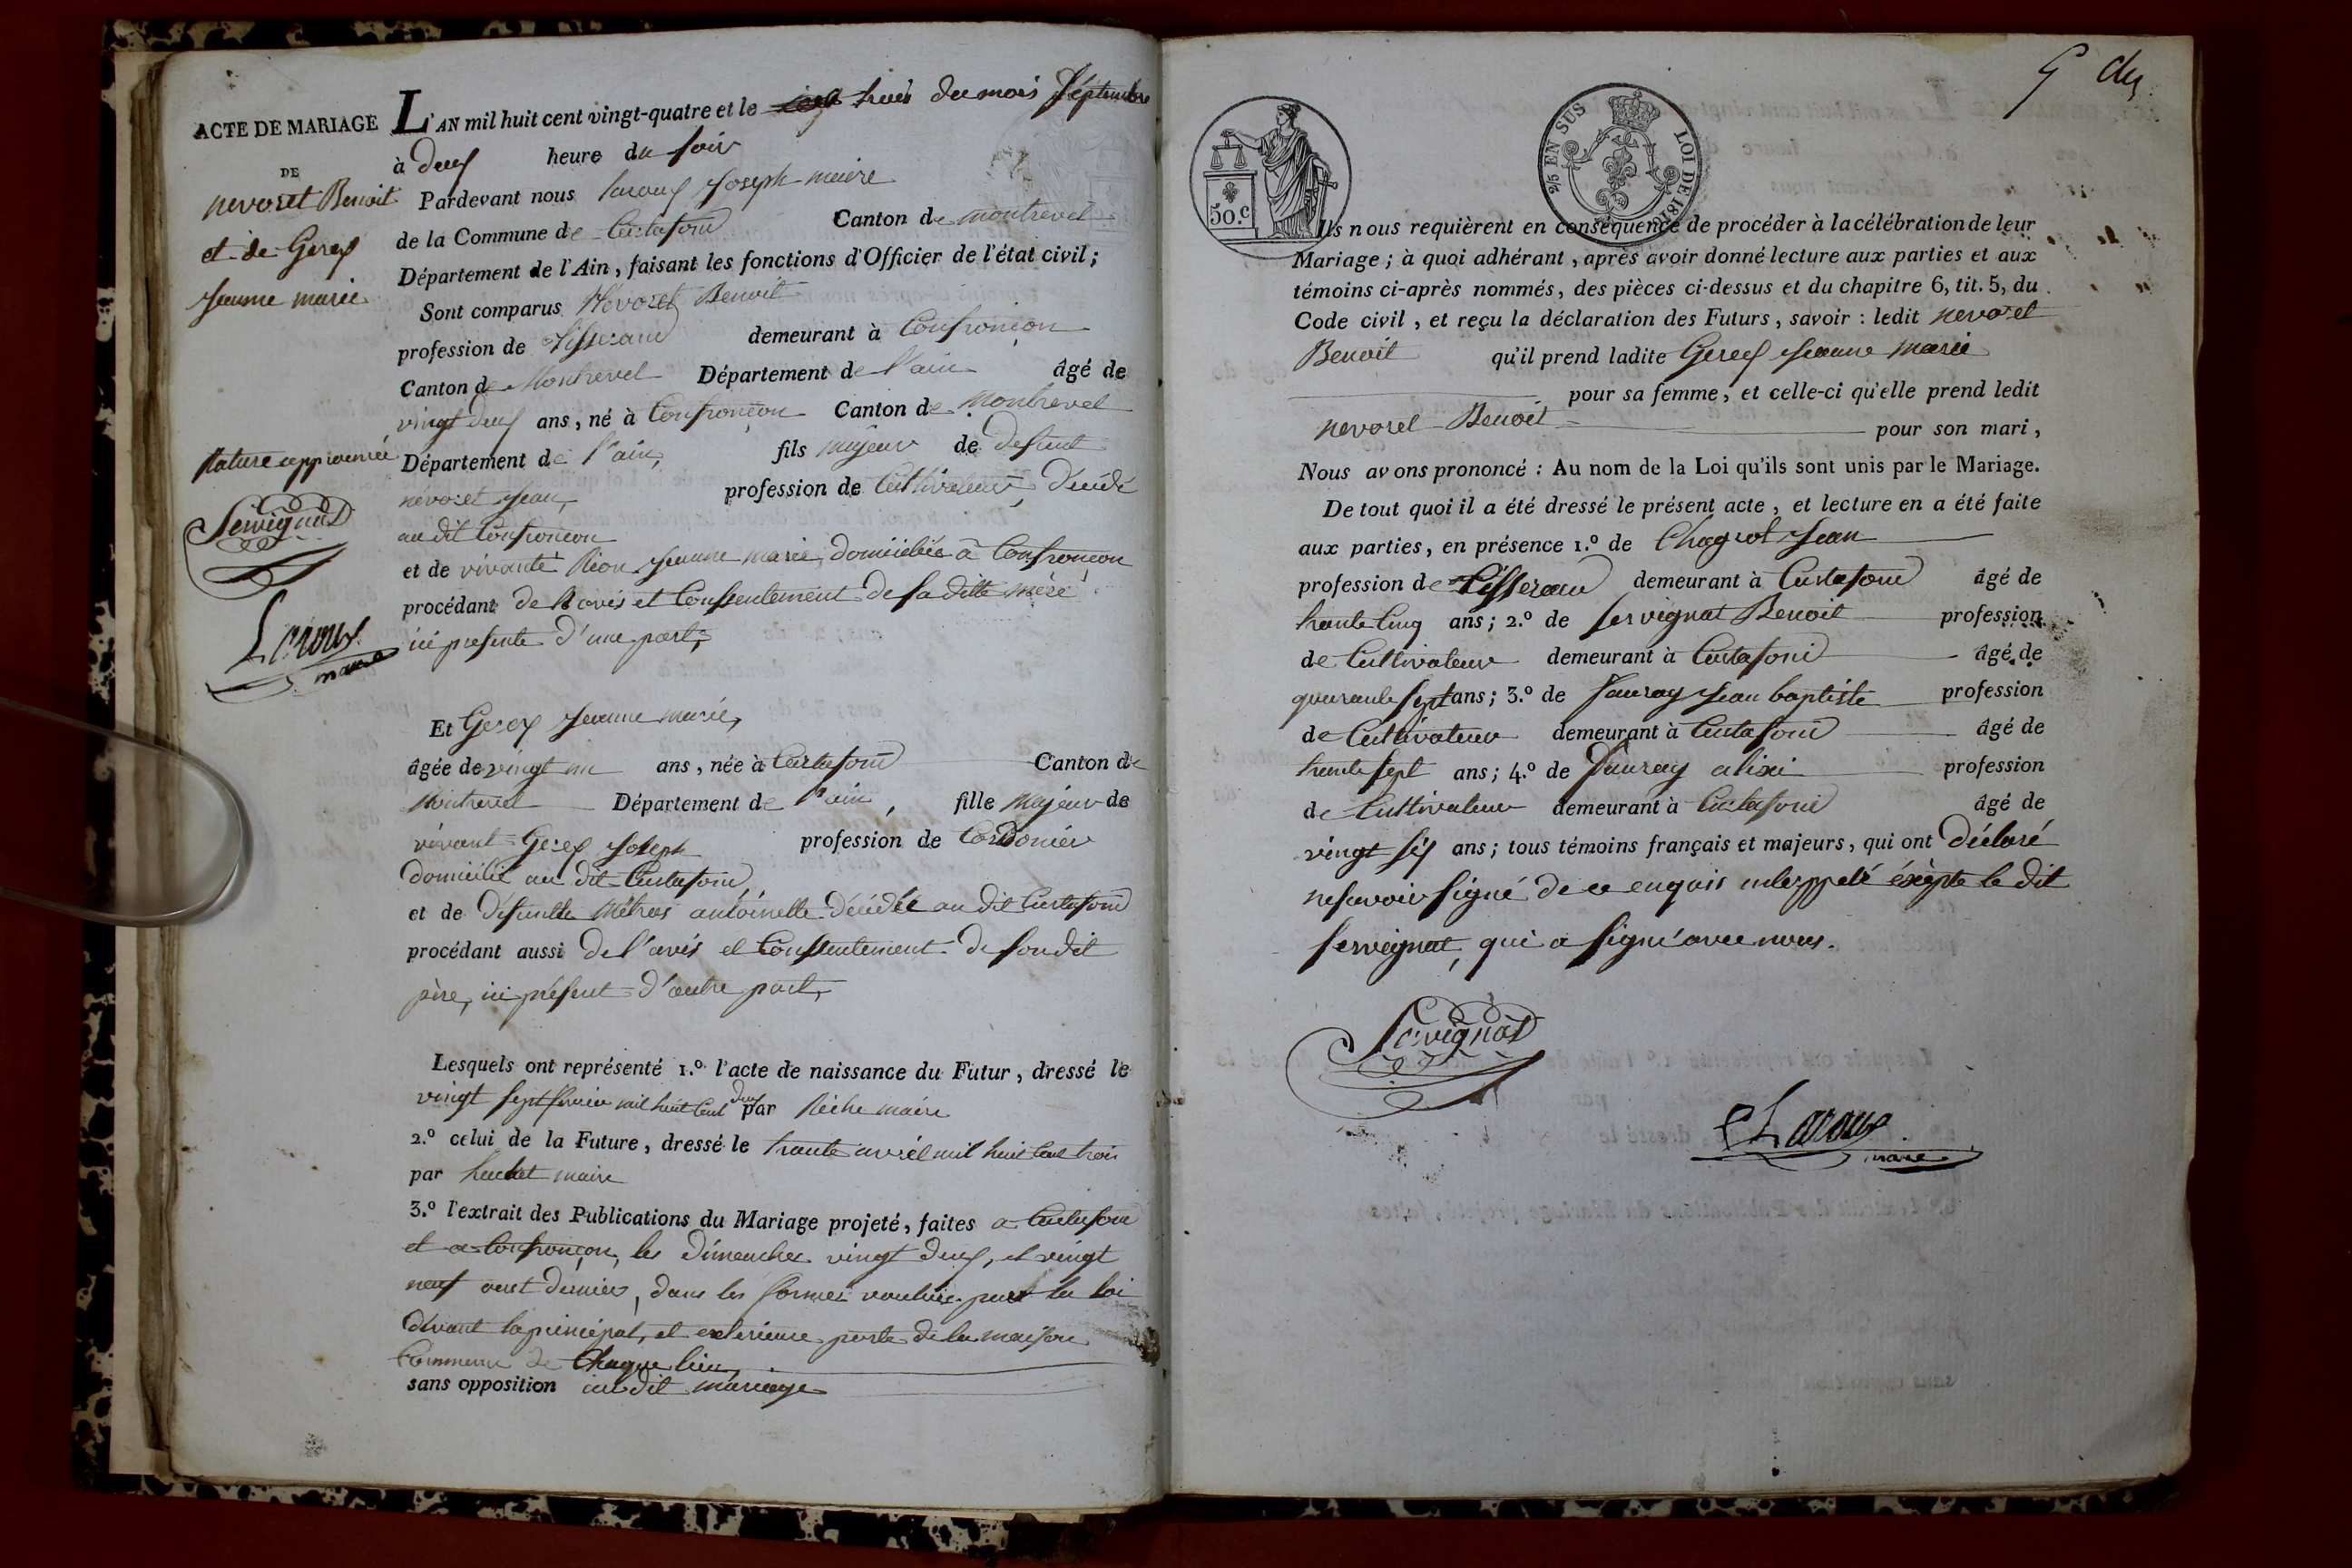 ACTE DE MARIAGE
DE
nevoret Benoit
et de Gerex
Jeanne marie
Rature approuvée
Servignat
Laroux
maire
L'AN mil huit cent vingt-quatre et le trois du mois Septembre
à deux heure du soir
Pardevant nous Laroux Joseph maire
de la Commune de Curtafond Canton de montrevel
Département de l'Ain, faisant les fonctions d'Officier de l'état civil;
Sont comparus Névoret Benoit
profession de Tisserand demeurant à Confrançon
Canton de Montrevel Département de l'ain âgé de
vingt deux ans, né à Confrançon Canton de Montrevel
Département de l'ain, fils majeur de defunt
nevoret Jean, profession de Cultivateur, décédé
au dit Confrançon
et de vivante Rion Jeanne marie, domiciliée à Confrançon
procédant de l'avis et Consentement de sa ditte mère
ici presente d'une part,
Et Gerex Jeanne marie,
âgée de vingt un ans, née à Curtafond Canton de
Montrevel Département de l'ain, fille majeur de
vivant Gerex Joseph profession de Cordonier
domicilié au dit Curtafond
et de défuntte Métras antoinette décédée au dit Curtafond
procédant aussi de l'avis et Consentement de son dit
père, ici présent d'autre part,
Lesquels ont représenté 1.º l'acte de naissance du Futur, dressé le
vingt sept février mil huit cent deux par Riche maire
2.º celui de la Future, dressé le trante avril mil huit cent trois
par huchet maire
3.º l'extrait des Publications du Mariage projeté, faites a Curtafond
et a Confrançon, les dimanches vingt deux, et vingt
neuf aout dernier, dans les formes voulues par la loi
devant la principal, et exterieure porte de la maison
Commune de Chaque lieu,
sans opposition au dit mariage
50.c
2/5 EN SUS LOI DE 1816
Ils nous requièrent en conséquence de procéder à la célébration de leur
Mariage; à quoi adhérant, après avoir donné lecture aux parties et aux
témoins ci-après nommés, des pièces ci-dessus et du chapitre 6, tit. 5, du
Code civil, et reçu la déclaration des Futurs, savoir: ledit nevoret
Benoit qu'il prend ladite Gerex Jeanne marie
pour sa femme, et celle-ci qu'elle prend ledit
nevoret Benoit pour son mari,
Nous avons prononcé: Au nom de la Loi qu'ils sont unis par le Mariage.
De tout quoi il a été dressé le présent acte, et lecture en a été faite
aux parties, en présence 1.º de Chagrot Jean
profession de Tisserand demeurant à Curtafond âgé de
trante Cinq ans; 2.º de servignat Benoit profession
de Cultivateur demeurant à Curtafond âgé de
quarante sept ans; 3.º de Jauray Jean baptiste profession
de Cultivateur demeurant à Curtafond âgé de
trante sept ans; 4.º de Jauray alixi profession
de Cultivateur demeurant à Curtafond âgé de
vingt six ans; tous témoins français et majeurs, qui ont déclaré
ne savoir signé de ce enquis interppelé éxèpte le dit
servignat, qui a signé avec nous.
Servignat
Laroux
maire